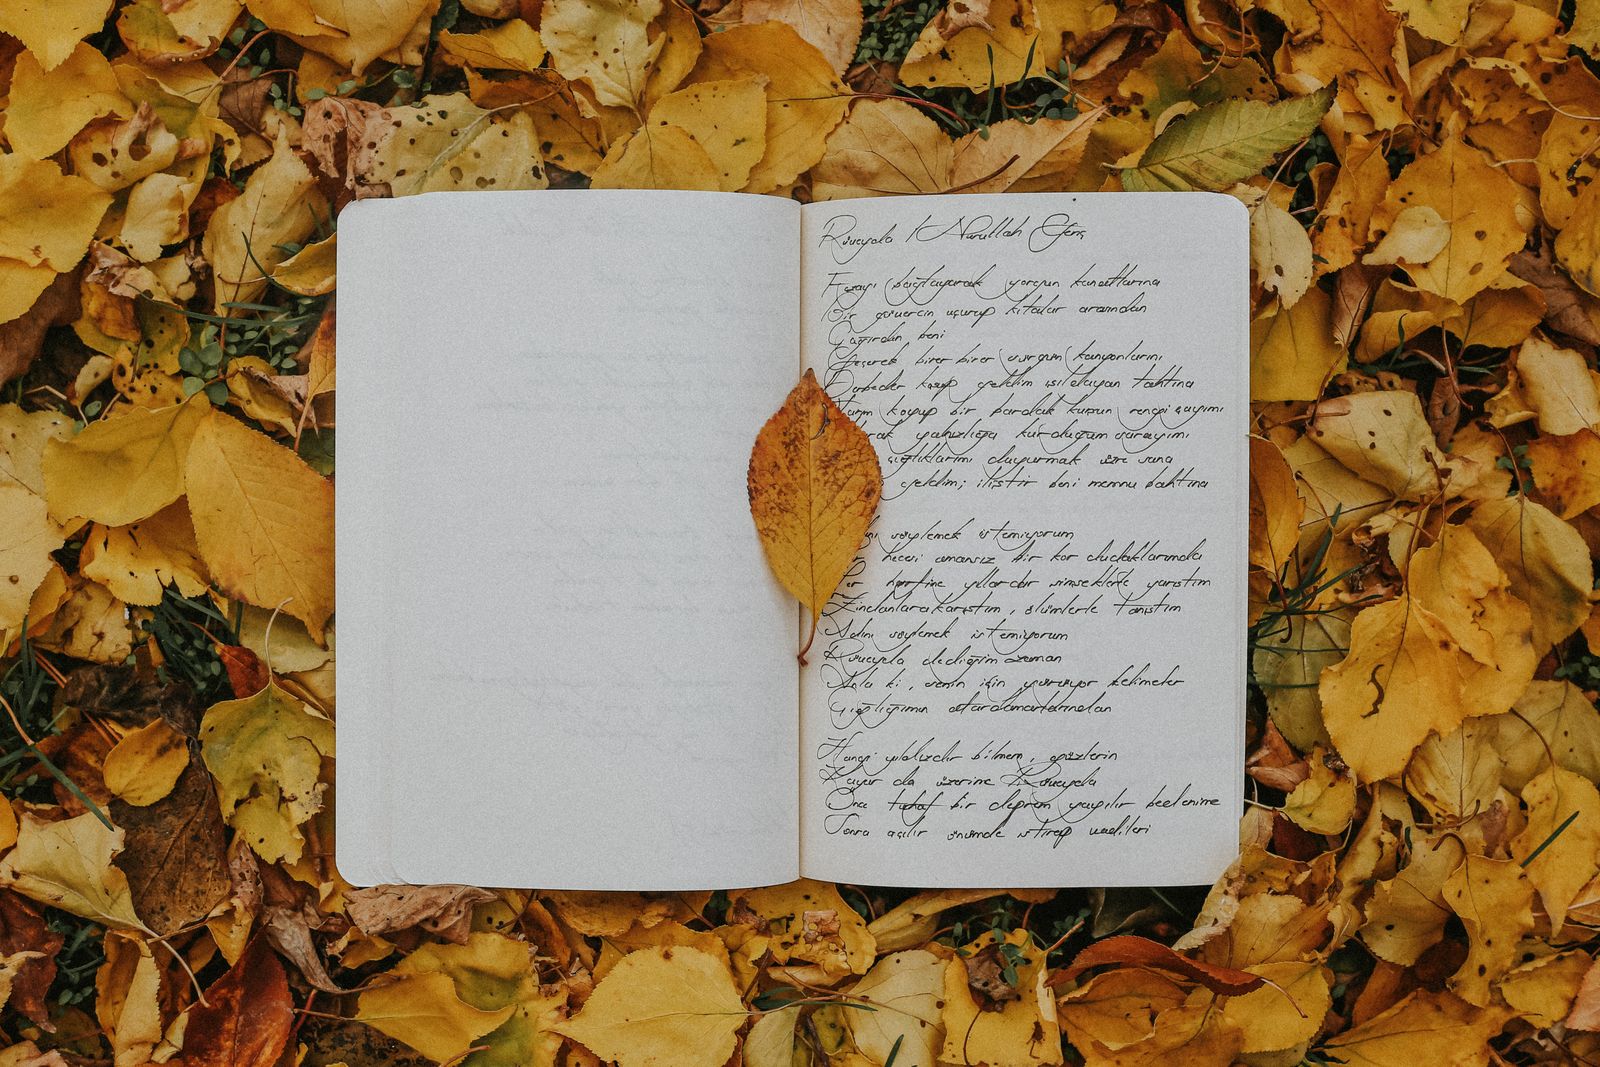 Rüveyda / Nurullah Genç
Fezayı bağlayarak yorgun kanatlarına
Bir güvercin uçurup kıtalar arasından
Çağırdın beni
Geçerek birer birer sürgün kanyonlarını
Derbeder koşup geldim ışıldayan tahtına
Yarım koyup bir bardak kurşun rengi çayımı
yalnızlığa kurduğum sarayımı
çığlıklarımı duyurmak üzre sana
geldim; iliştir beni memnu bahtına
söylemek istemiyorum
amansız bir kor dudaklarımda
Her harfine yıllarca şimşeklerle yarıştım
Zindanlara karıştım, ölümlerle tanıştım
Adını söylemek istemiyorum
Rüveyda dediğim zaman
Anla ki, senin için yürüyor kelimeler
Gençliğimin atardamarlarından
Hangi yıldızdır bilmem, gözlerin
Kayar da üzerime Rüveyda
Önce tuhaf bir deprem yayılır bedenime
Sonra açılır önümde ıstırap vadileri